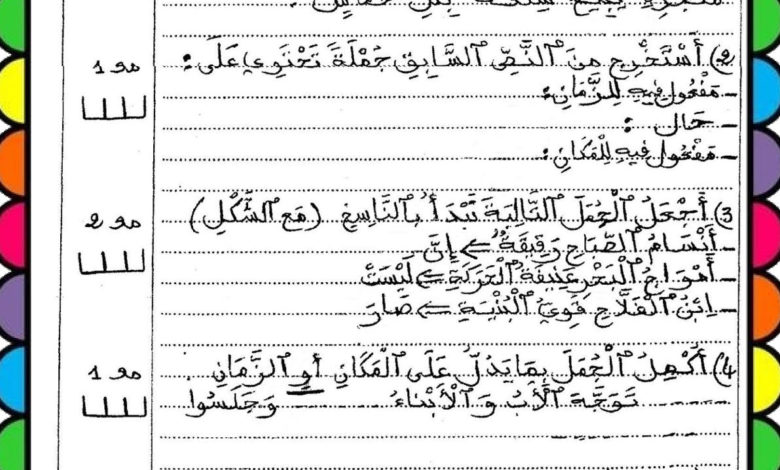 2) أَسْتَخْرِج مِنَ ٱلنَّصِّ ٱلسَّابِقِ جُمْلَةً تَحْتَوِي عَلَى:
مع 1
- مَفْعُول فِيهِ لِلزَّمَانِ:
- حَال :
- مَفْعُول فِيهِ لِلْمَكَانِ:
3) أَجْعَلُ ٱلْجُمَلَ ٱلتَّالِيَةَ تَبْدَأُ بِٱلنَّاسِخِ (مَعَ ٱلشَّكْلِ)
مع 2
- أَنْسَامُ ٱلصَّبَاحِ رَقِيقَةٌ => إِنَّ
- أَمْوَاجُ ٱلْبَحْرِ عَنِيفَةُ ٱلْحَرَكَةِ => لَيْسَتْ
- اِبْنُ ٱلْفَلَّاحِ قَوِيُّ ٱلْبُنْيَةِ => صَارَ
4) أُكْمِلُ ٱلْجُمَلَ بِمَا يَدُلُّ عَلَى ٱلْمَكَانِ أَوِ ٱلزَّمَانِ
مع 1
تَوَجَّهَ ٱلْأَبُ وَ ٱلْأَبْنَاءُ وَجَلَسُوا